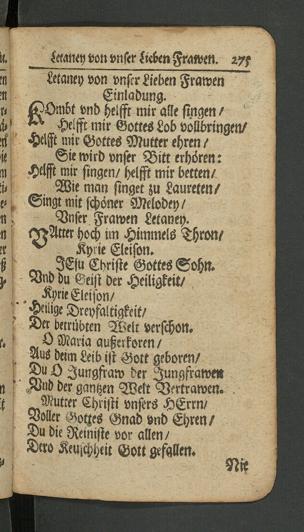 Letaney von vnser Lieben Frawen. 275
Letaney von vnser Lieben Frawen
Einladung.
KOmbt vnd helfft mir alle singen/
Helfft mir Gottes Lob vollbringen/
Helfft mir Gottes Mutter ehren/
Sie wird vnser Bitt erhören:
Helfft mir singen/ helfft mir betten/
Wie man singet zu Laureten/
Singt mit schöner Melodey/
Vnser Frawen Letaney.
VAtter hoch im Himmels Thron/
Kyrie Eleison.
JEsu Christe Gottes Sohn.
Vnd du Geist der Heiligkeit/
Kyrie Eleison/
Heilige Dreyfaltigkeit/
Der betrübten Welt verschon.
O Maria außerkoren/
Aus deim Leib ist Gott geboren/
Du O Jungfraw der Jungfrawen
Vnd der gantzen Welt Vertrawen.
Mutter Christi vnsers HErrn/
Voller Gottes Gnad vnd Ehren/
Du die Reiniste vor allen/
Dero Keuschheit Gott gefallen.
Nie